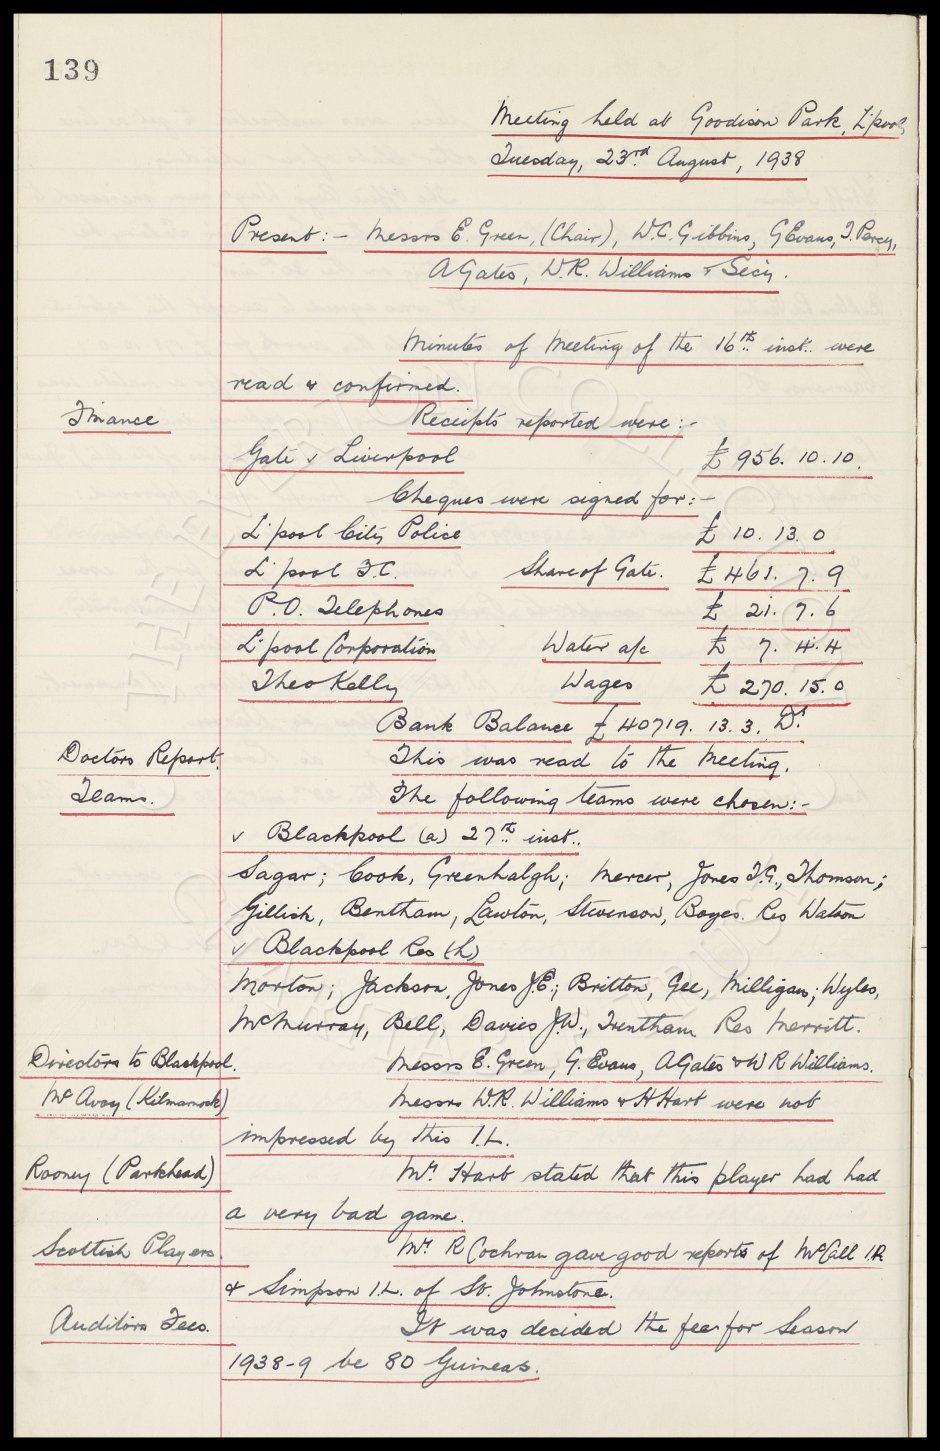 139
Meeting held at Goodison Park, L'pool,
Tuesday, 23rd August, 1938
Present:- Messrs E. Green, (Chair), W.C. Gibbins, G Evans, T. Percy,
A Gates, W.R. Williams & Sec'y.
Minutes of Meeting of the 16th inst. were
read & confirmed.
Finance Receipts reported were:-
Gate v Liverpool £956. 10. 10.
Cheques were signed for:-
L'pool City Police £ 10. 13. 0
L'pool F.C. Share of Gate. £461. 7. 9
P.O. Telephones £ 21. 7. 6
L'pool Corporation Water a/c £ 7. 4. 4
Theo Kelly Wages £ 270. 15. 0
Bank Balance £40719. 13. 3. Dr
Doctors Report. This was read to the Meeting.
Teams. The following teams were chosen:-
v Blackpool (a) 27th inst.
Sagar; Cook, Greenhalgh; Mercer, Jones T.G., Thomson;
Gillick, Bentham, Lawton, Stevenson, Boyes. Res Watson
v Blackpool Res (h)
Morton; Jackson, Jones J.E.; Britton, Gee, Milligan; Wyles,
McMurray, Bell, Davies J.W., Trentham Res Merritt.
Directors to Blackpool. Messrs E. Green, G. Evans, A Gates & W R Williams.
McAvoy (Kilmarnock) Messrs W.R. Williams & H Hart were not
impressed by this I.L.
Rooney (Parkhead) Mr. Hart stated that this player had had
a very bad game.
Scottish Players. Mr. R Cochran gave good reports of McCall I.R.
& Simpson I.L. of St. Johnstone.
Auditors Fees. It was decided the fee for Season
1938-9 be 80 Guineas.